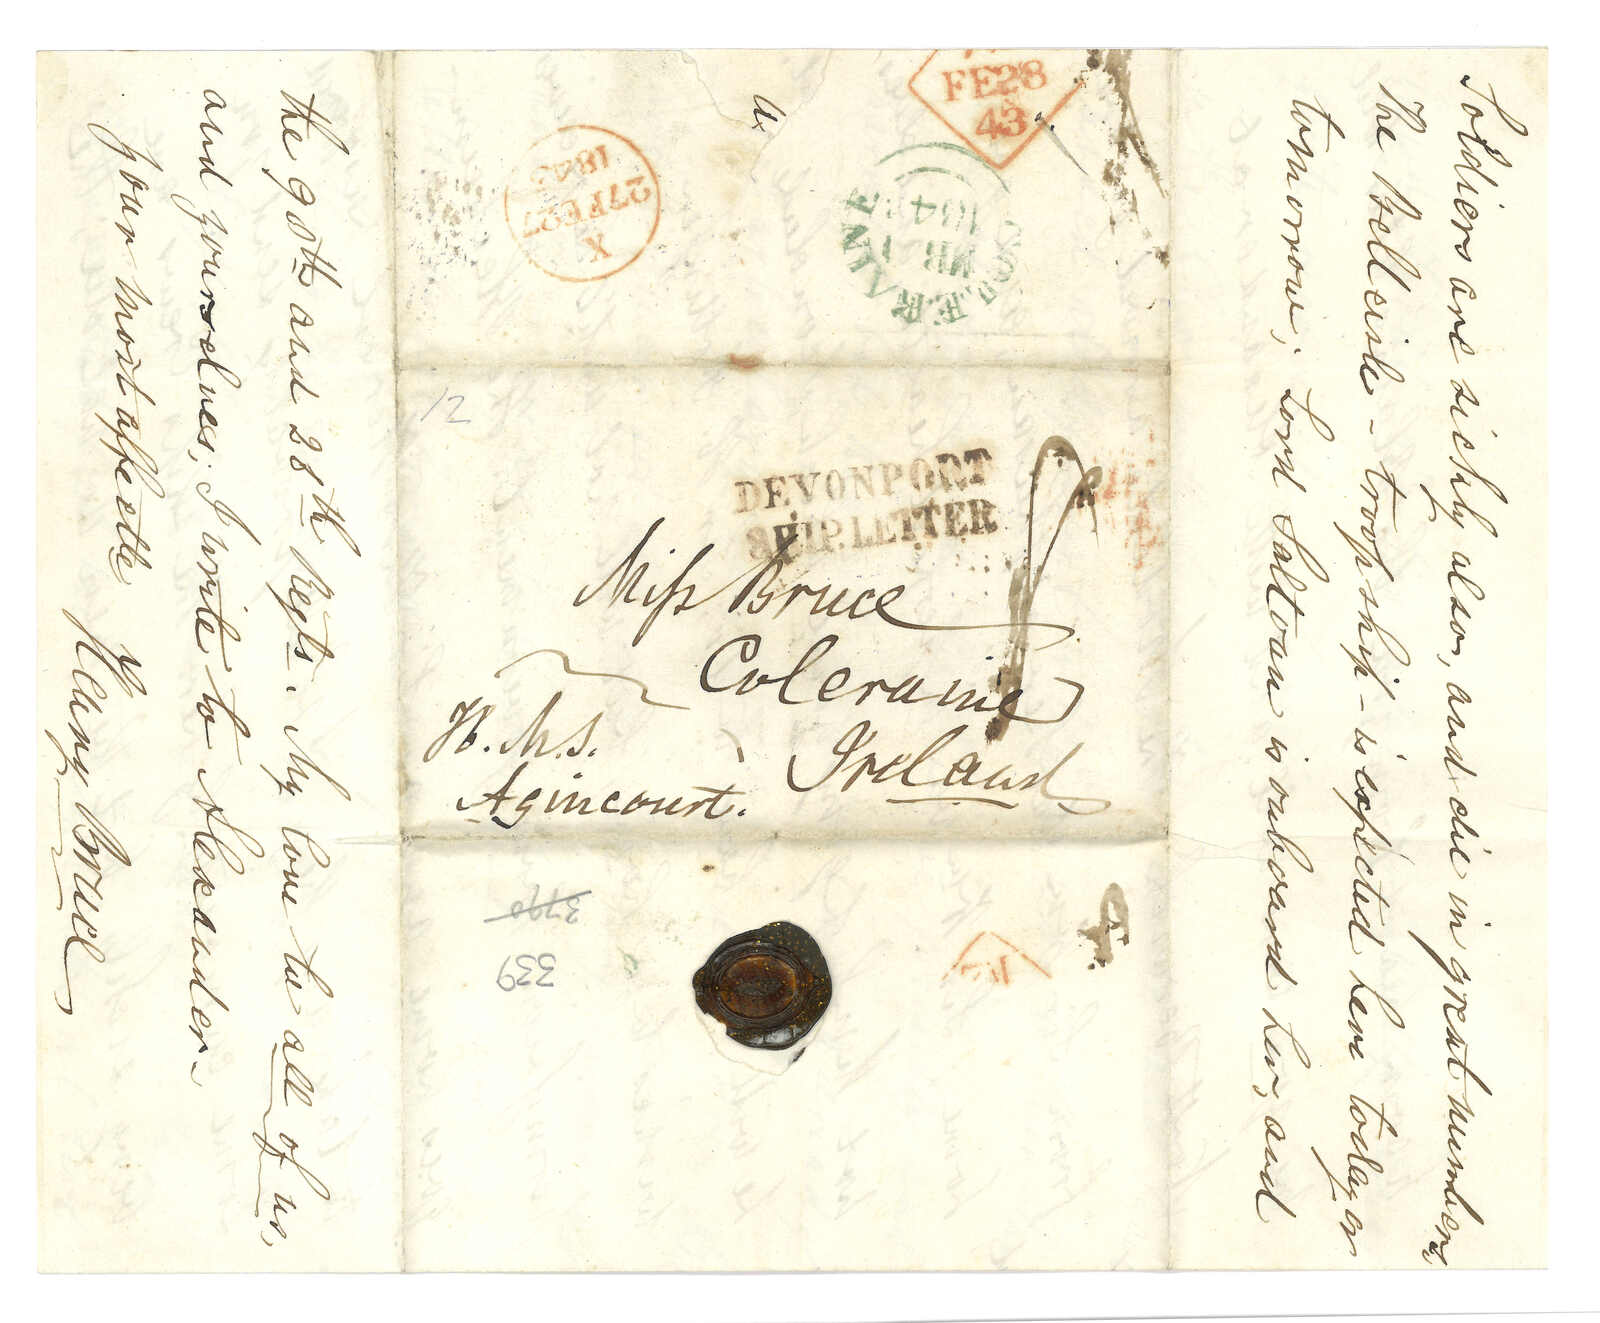 Soldiers are sickly also, and die in great numbers
The Belleisle - troop ship - is expected here today or
tomorrow; Lord Saltoun is onboard her, and
the 98th and 28th Regts. My love to all of us,
and yourselves; I write to Alexander.
Your most affecte
Henry Bruce
FE 28
43
X
27FE27
1843
COLERAINE
MR 1
184
12
DEVONPORT
SHIP LETTER
Miss Bruce
Coleraine
Ireland
H.M.S.
Agincourt.
3790
339